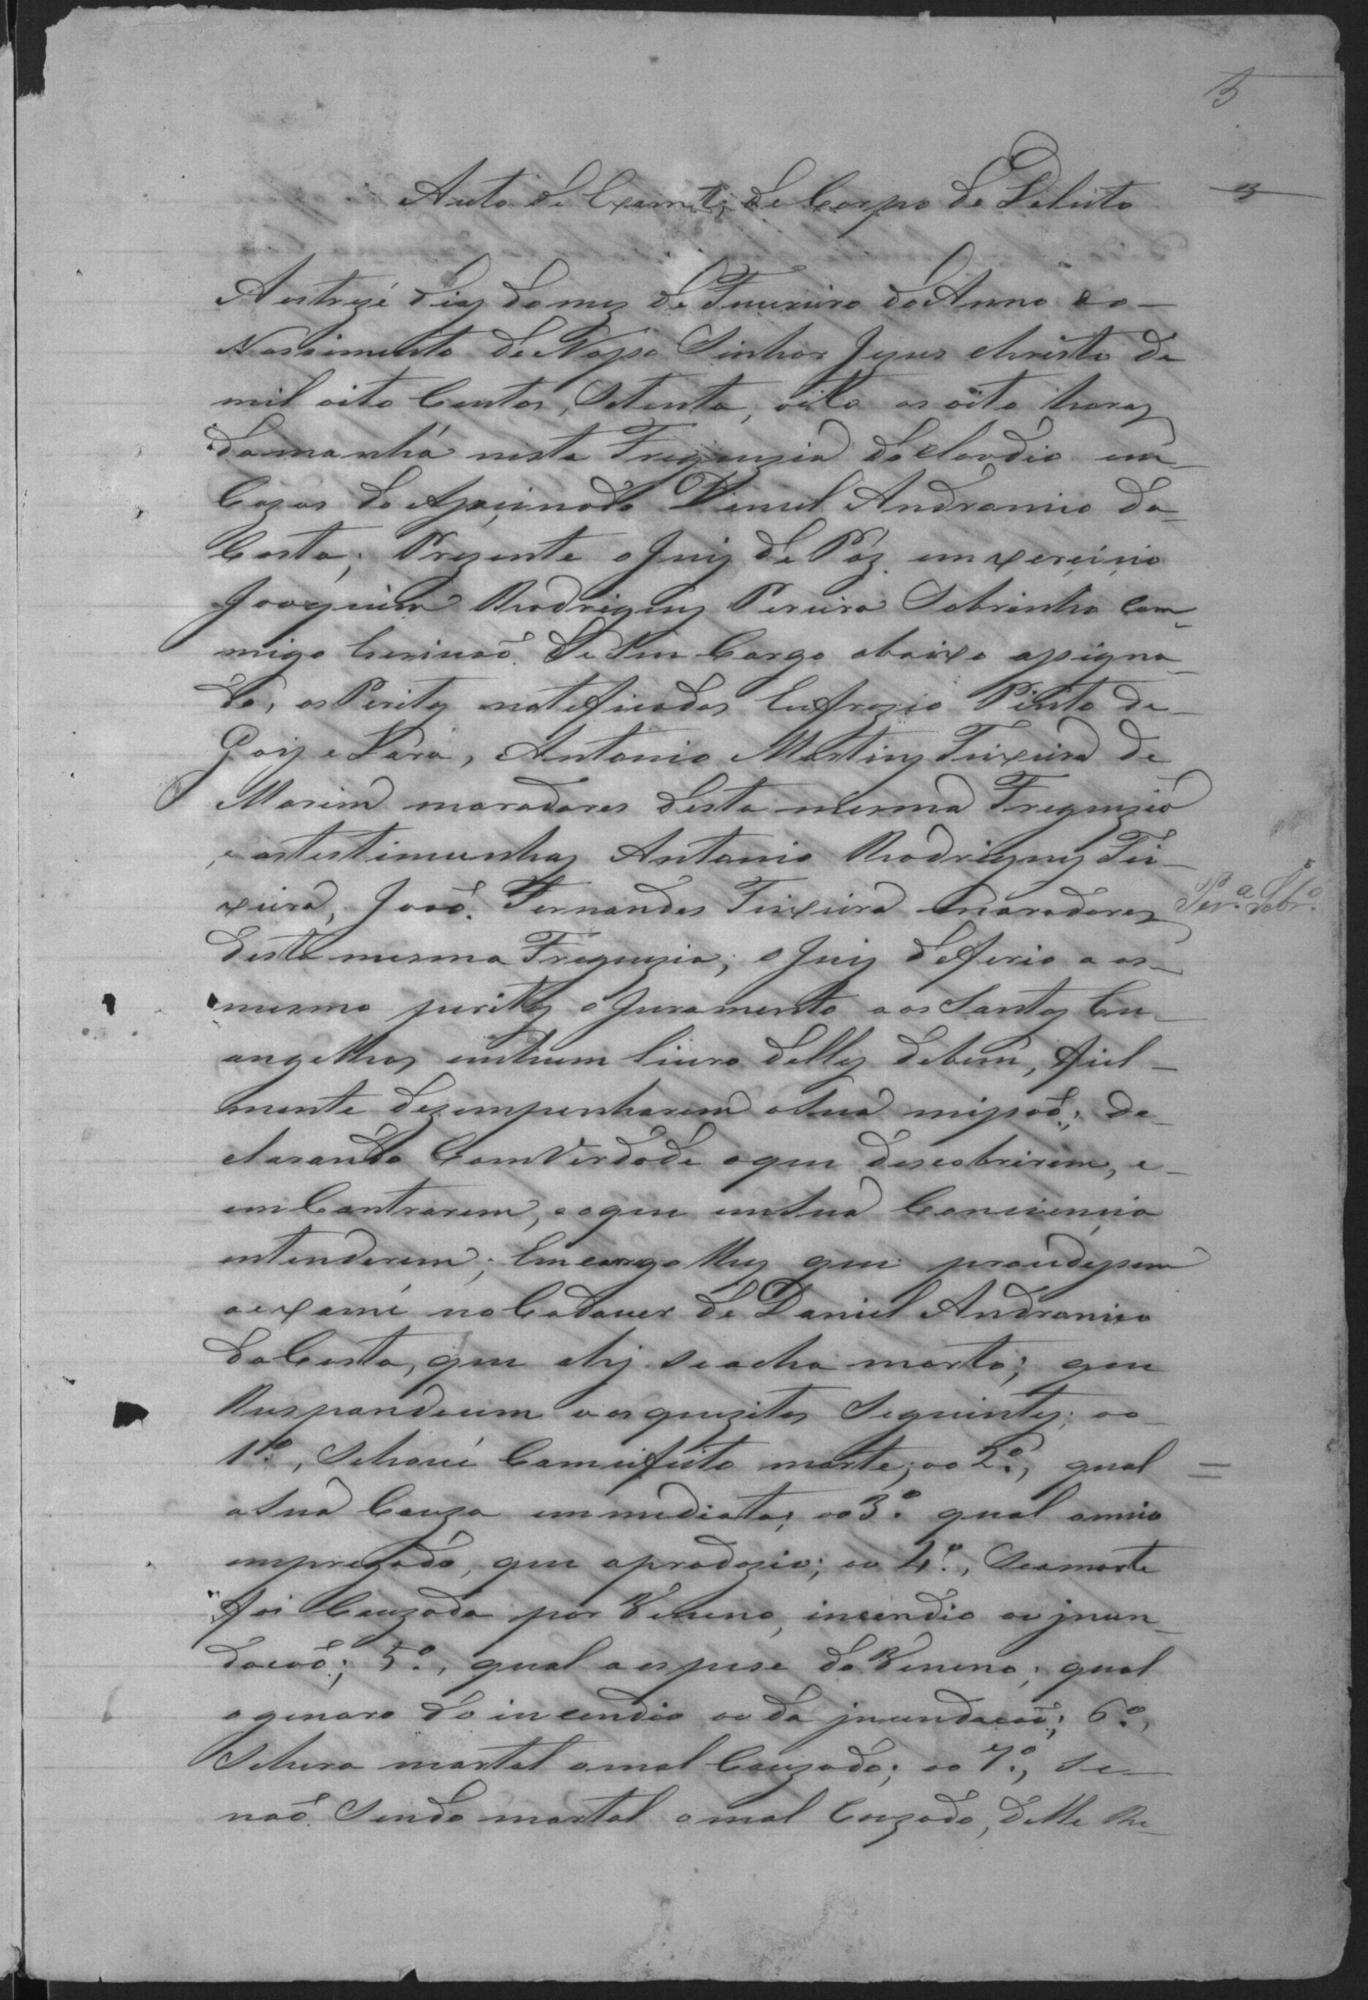 5
3
Auto de Exame, de Corpo de Delicto
Aos treze dias do mez de Fevereiro do Anno do
Nascimento de Nosso Senhor Jesus Christo de
mil oito Centos, Setenta, oito as oito horas
da manhá nesta Freguezia do Claudio em
Cazas do Daniel Andronico da
Costa; Prezente o Juiz de Páz em xercicio
Joaquim Rodrigues Pereira Sobrinho com
migo Escrivaõ de Seu Cargo abaixo assigna-
do, os Peritos notificados Eufrazio Pinto de
Goiz e Lara, Antonio Martins Teixeira de
Morim moradores desta mesma Freguezia
e as testimunhas Antonio Rodrigues Tei-
xeira, Joaõ Fernandes Teixeira moradores
desta mesma Freguezia; o Juiz deferio a os
mesmo peritos o Juramento aos Santos Ev-
angelhos em hum livro delles de bem, fiel-
mente dezempenharem a Sua missaõ; de-
clarando Com Verdade o que descobrirem, e
em Contrarem, e o que em Sua Conciencia
entenderem; Emcarga lhes que proudessem
o exame no Cadaver de Daniel Andronico
da Costa, que ahj se acha morto; que
Respondecem aos quezitos Seguintes; ao
1º, Se houve Com efeito morte; ao 2º, qual
a Sua Cauza emmediata; ao 3º qual o meio
empregado, que a produzio; ao 4º, Se a morte
foi Cauzada por Veneno, incendio ou jnun-
dacaõ; 5º, qual a espese do Veneno; qual
o genaro do incendio ou da jnundacaõ; 6º,
Se hera mortal o mal Cauzado; ao 7º, Se
naõ Sendo mortal o mal Cauzado, delle Re-